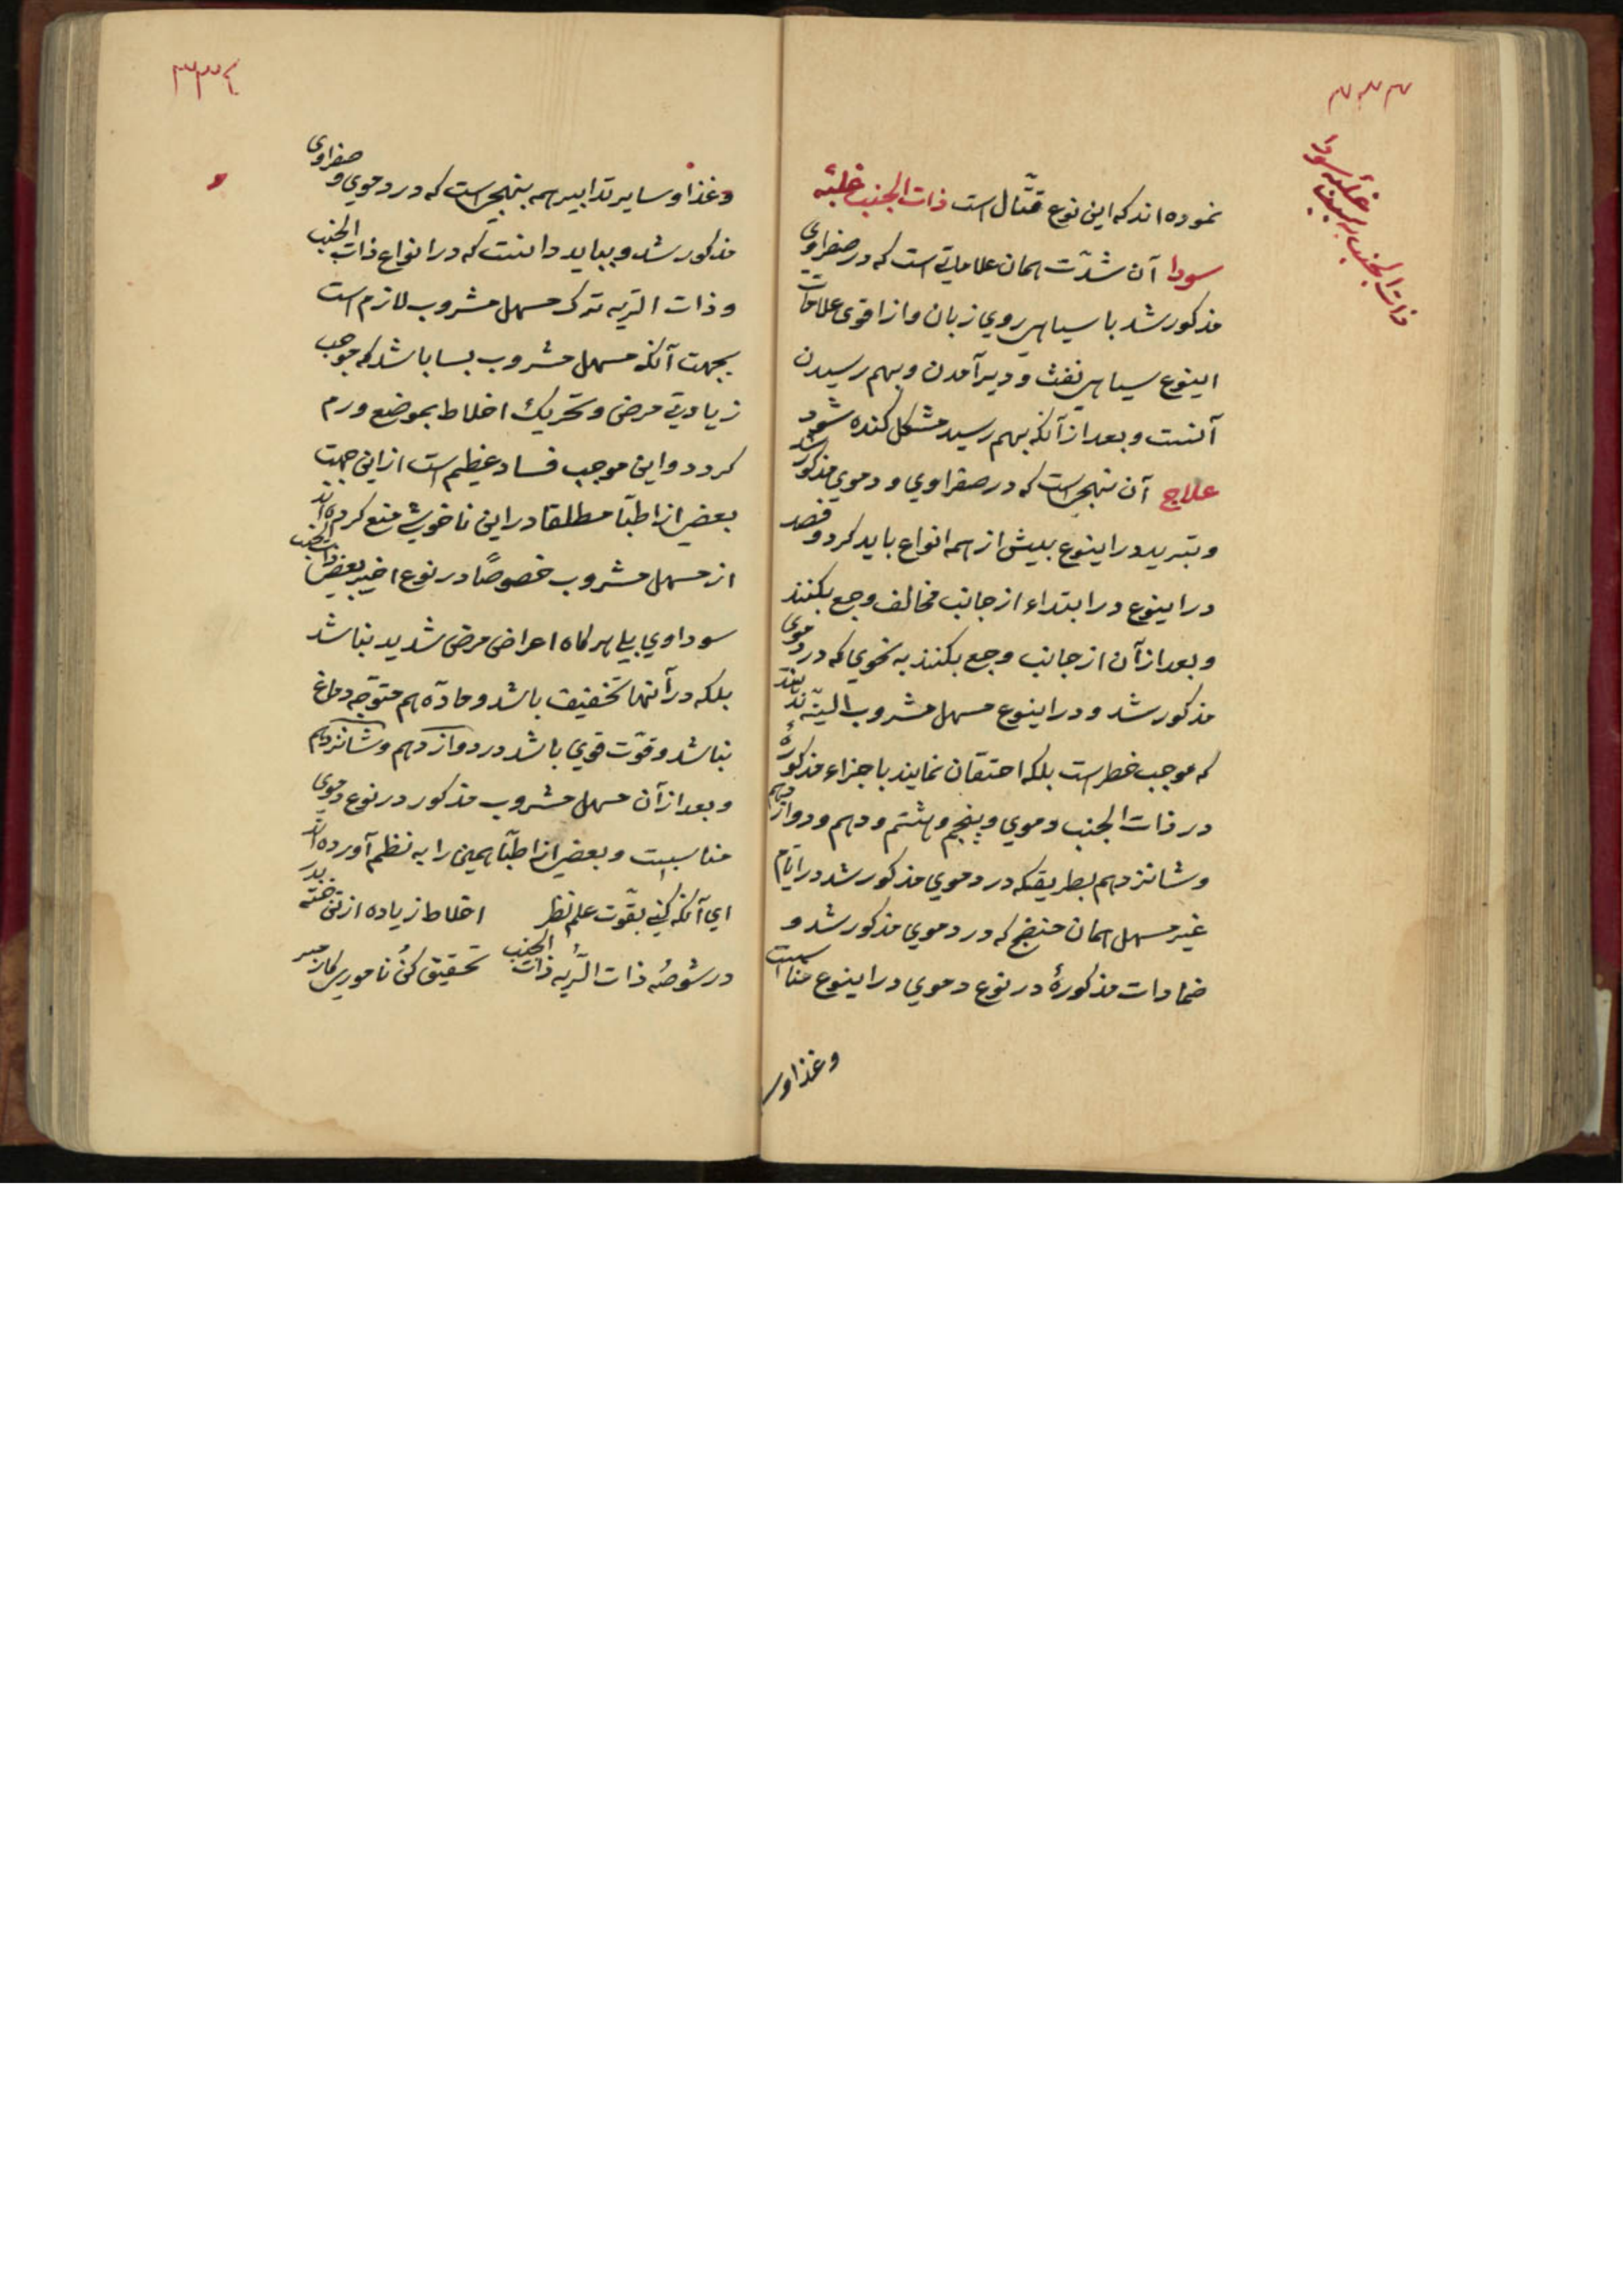 ۳۳۳
ذات الجنب بسبب غلبۀ سودا
نموده اند که این نوع قتّال است ذات الجنب غلبۀ
سودا آن شدّت همان علاماتی است که در صفراوی
مذکور شد با سیاهی روی زبان و از اقوی علامات
اینوع سیاهی نفث و دیر آمدن و بهم رسیدن
آنست و بعد از آنکه بهم رسید مشکل کنده شود
علاج آن بنهجی است که در صفراوی و دموی مذکور شد
و تبرید در اینوع بیش از همه انواع باید کرد و فصد
در اینوع در ابتداء از جانب مخالف وجع بکنند
و بعد از آن از جانب وجع بکنند به نحوی که در دموی
مذکور شد و در اینوع مسهل مشروب البتّه ندهند
که موجب خطر است بلکه احتقان نمایند باجزاء مذکورۀ
در ذات الجنب دموی و پنجم و هشتم و دهم و دوازدهم
و شانزدهم بطریقیکه در دموی مذکور شد در ایّام
غیر مسهل همان منضج که در دموی مذکور شد و
ضمادات مذکورۀ در نوع دموی در اینوع مناسبست
و غذا و س
۳۳۴
و غذا و سایر تدابیر همه بنهجی است که در دموی و صفراوی
مذکور شد و بباید دانست که در انواع ذات الجنب
و ذات الریه ترک مسهل مشروب لازم است
بجهت آنکه مسهل مشروب بسا باشد که موجب
زیادتی مرض و تحریک اخلاط بموضع ورم
کردد و این موجب فساد عظیم است از این جهت
بعضی از اطبّا مطلقا در این ناخوشی منع کرده اند
از مسهل مشروب خصوصًا در نوع اخیر یعنی ذات الجنب
سوداوی بلی هرکاه اعراض مرض شدید نباشد
بلکه در آنها تخفیف باشد و مادّه هم متوجّه دماغ
نباشد و قوّت قوی باشد در دوازدهم و شانزدهم
و بعد از آن مسهل مشروب مذکور در نوع دموی
مناسبست و بعضی از اطبّا همین را به نظم آورده اند
ای آنکه کنی بقوّت علم نظر اخلاط زیاده از تن خسته بدر
در شوصۀ ذات الرّیۀ ذات الجنب تحقیق کن نام